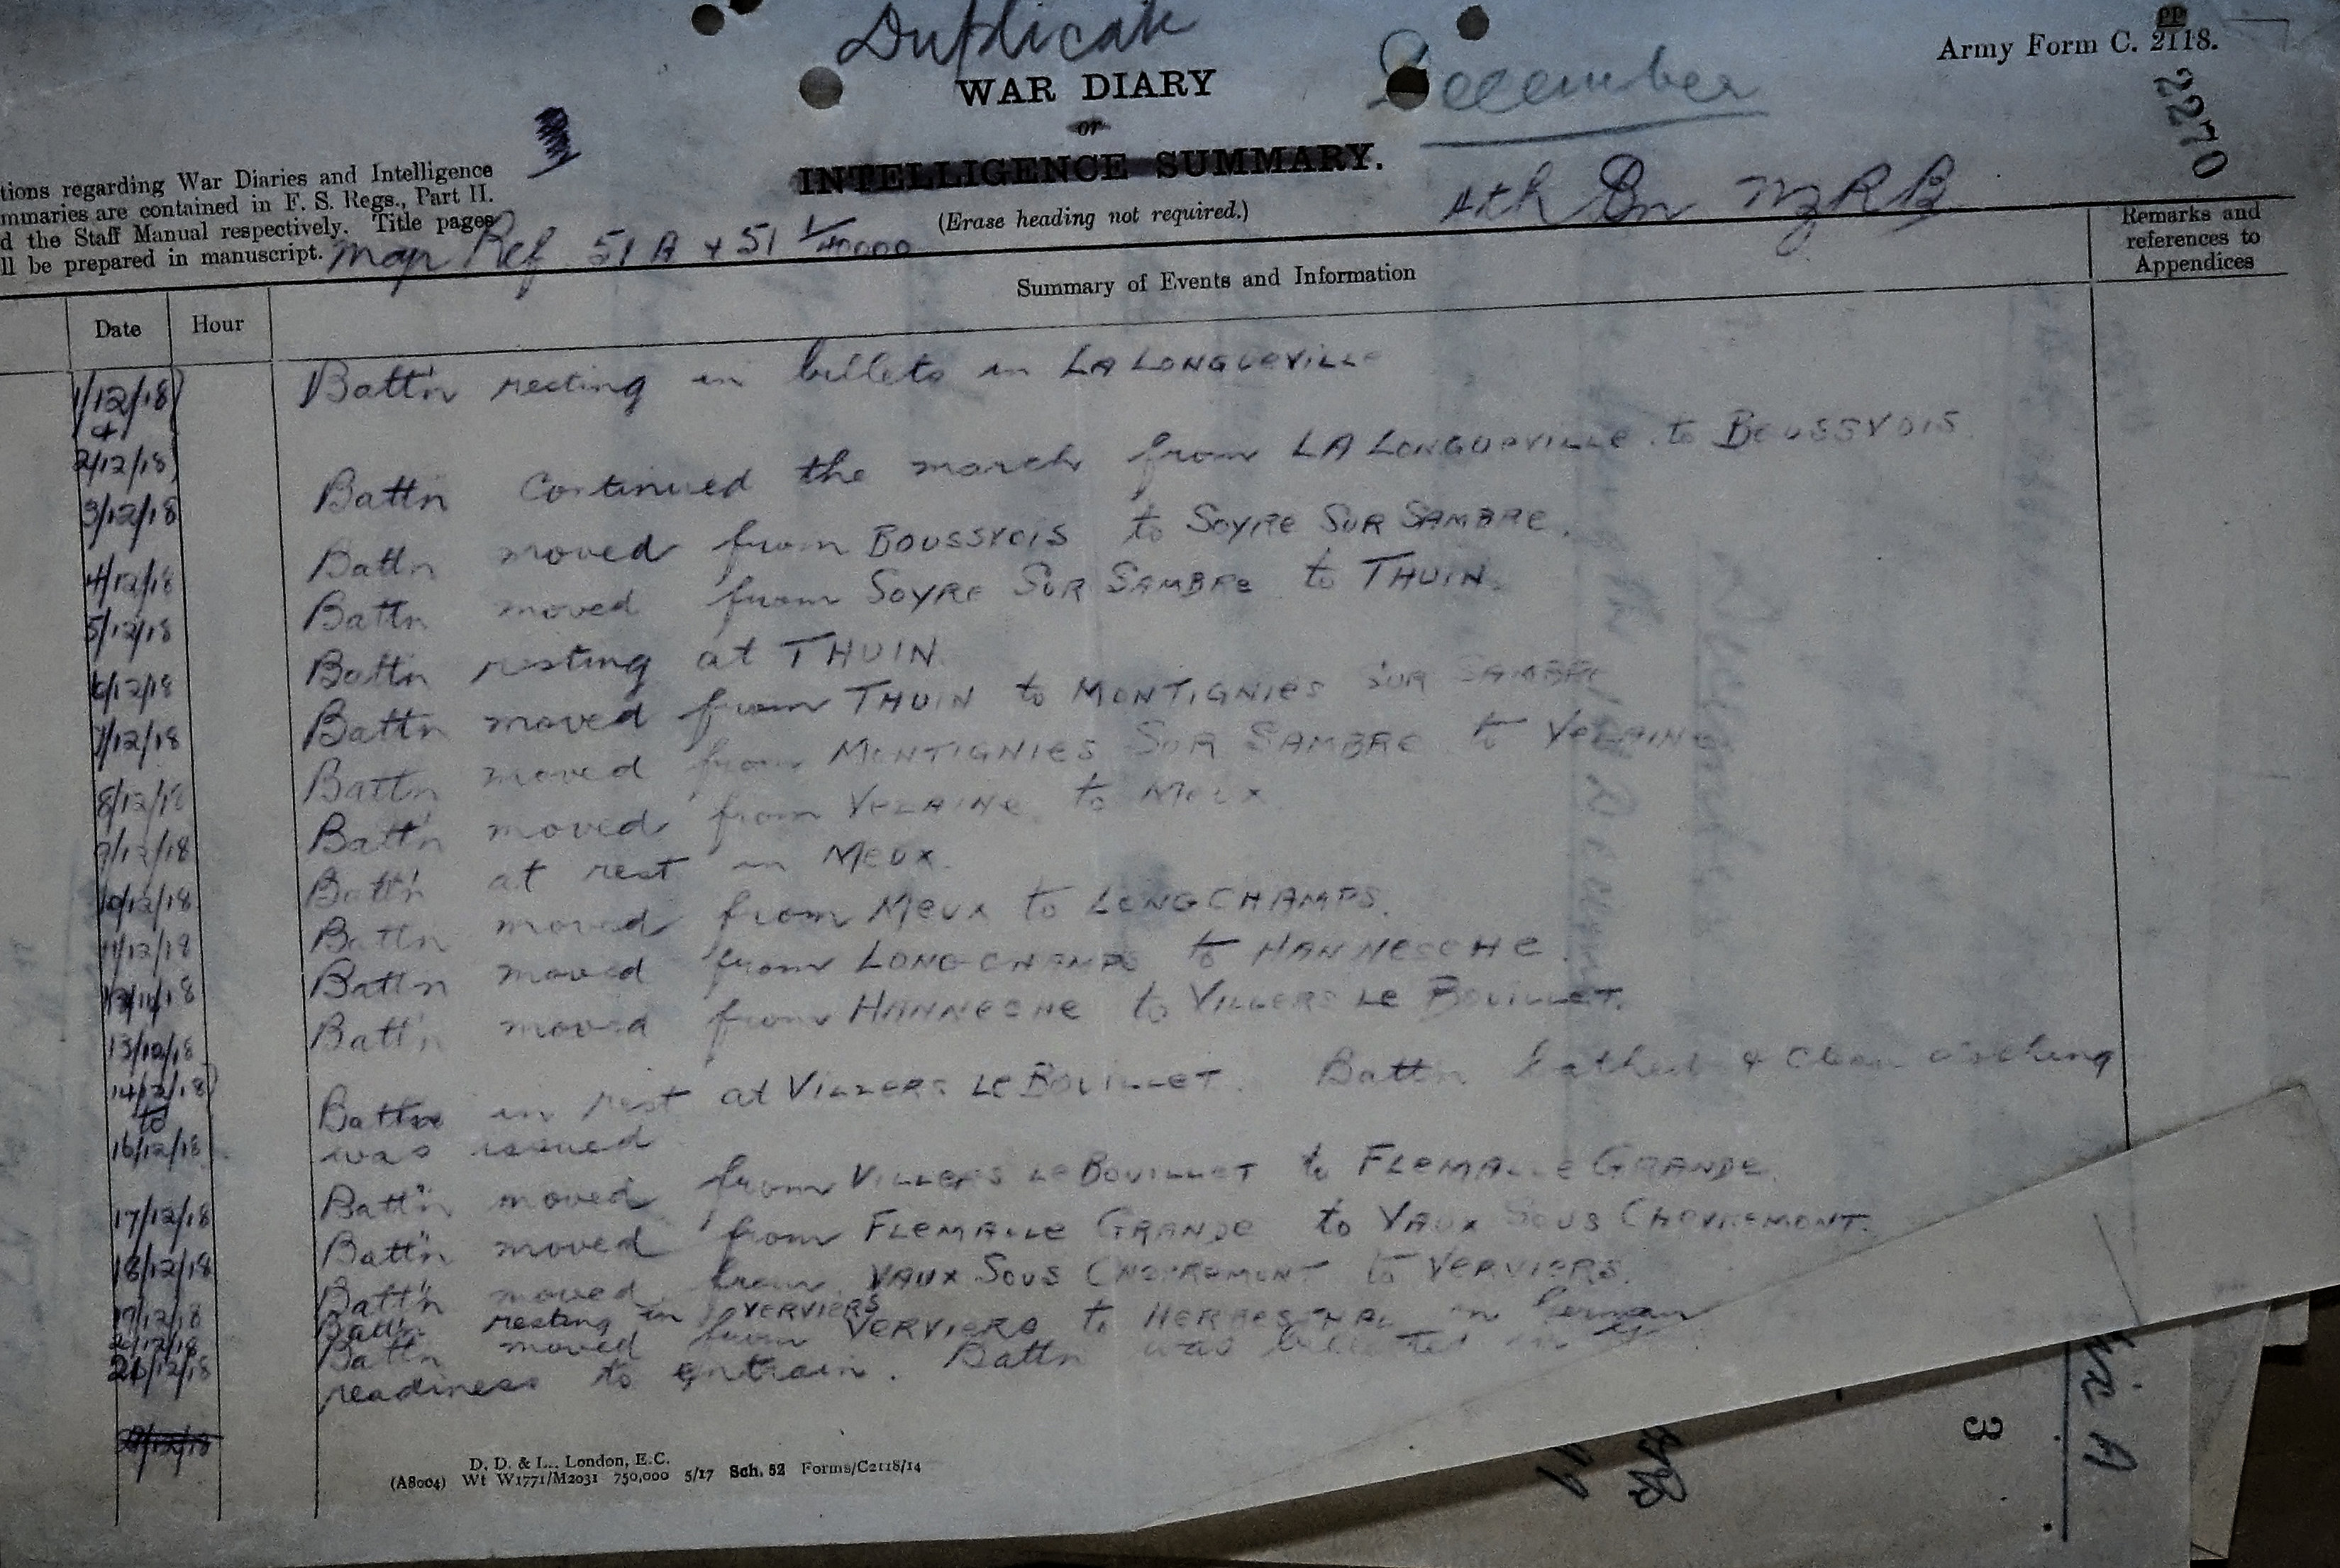 Duplicate
December
Army Form C. 2118.
WAR DIARY
or
INTELLIGENCE SUMMARY.
(Erase heading not required.)
2270
4th Bn NZRB
tions regarding War Diaries and Intelligence
mmaries are contained in F. S. Regs., Part II.
d the Staff Manual respectively. Title pages
ll be prepared in manuscript.
Map Ref 51 A + 51 1/40000
Date Hour Summary of Events and Information Remarks and references to Appendices
1/12/18) Batt'n resting in billets in LA LONGUEVILLE
&
2/12/18)
3/12/18 Batt'n continued the march from LA LONGUEVILLE to BOUSSVOIS
4/12/18 Batt'n moved from BOUSSVOIS to SOYRE SUR SAMBRE.
5/12/18 Batt'n moved from SOYRE SUR SAMBRE to THUIN.
6/12/18 Batt'n resting at THUIN
7/12/18 Batt'n moved from THUIN to MONTIGNIES SUR SAMBRE
8/12/18 Batt'n moved from MONTIGNIES SUR SAMBRE to VELAINE
9/12/18 Batt'n moved from VELAINE to MEUX
10/12/18 Batt'n at rest in MEUX.
11/12/18 Batt'n moved from MEUX to LONGCHAMPS.
Batt'n moved from LONGCHAMPS to HANNESCHE.
Batt'n moved from HANNESCHE to VILLERS LE BOUILLET.
14/12/18) Batt'n in rest at VILLERS LE BOUILLET. Batt'n bathed & clean clothing
to
16/12/18 was issued
17/12/18 Batt'n moved from VILLERS LE BOUILLET to FLEMALLE GRANDE.
18/12/18 Batt'n moved from FLEMALLE GRANDE to VAUX SOUS CHEVREMONT.
19/12/18 Batt'n moved from VAUX SOUS CHEVREMONT to VERVIERS.
Batt'n resting in VERVIERS
Batt'n moved from VERVIERS to HERBESTHAL in German
readiness to entrain. Batt'n was billeted in
D. D. & L., London, E.C.
(A8004) Wt W1771/M2031 750,000 5/17 Sch. 52 Forms/C2118/14
3